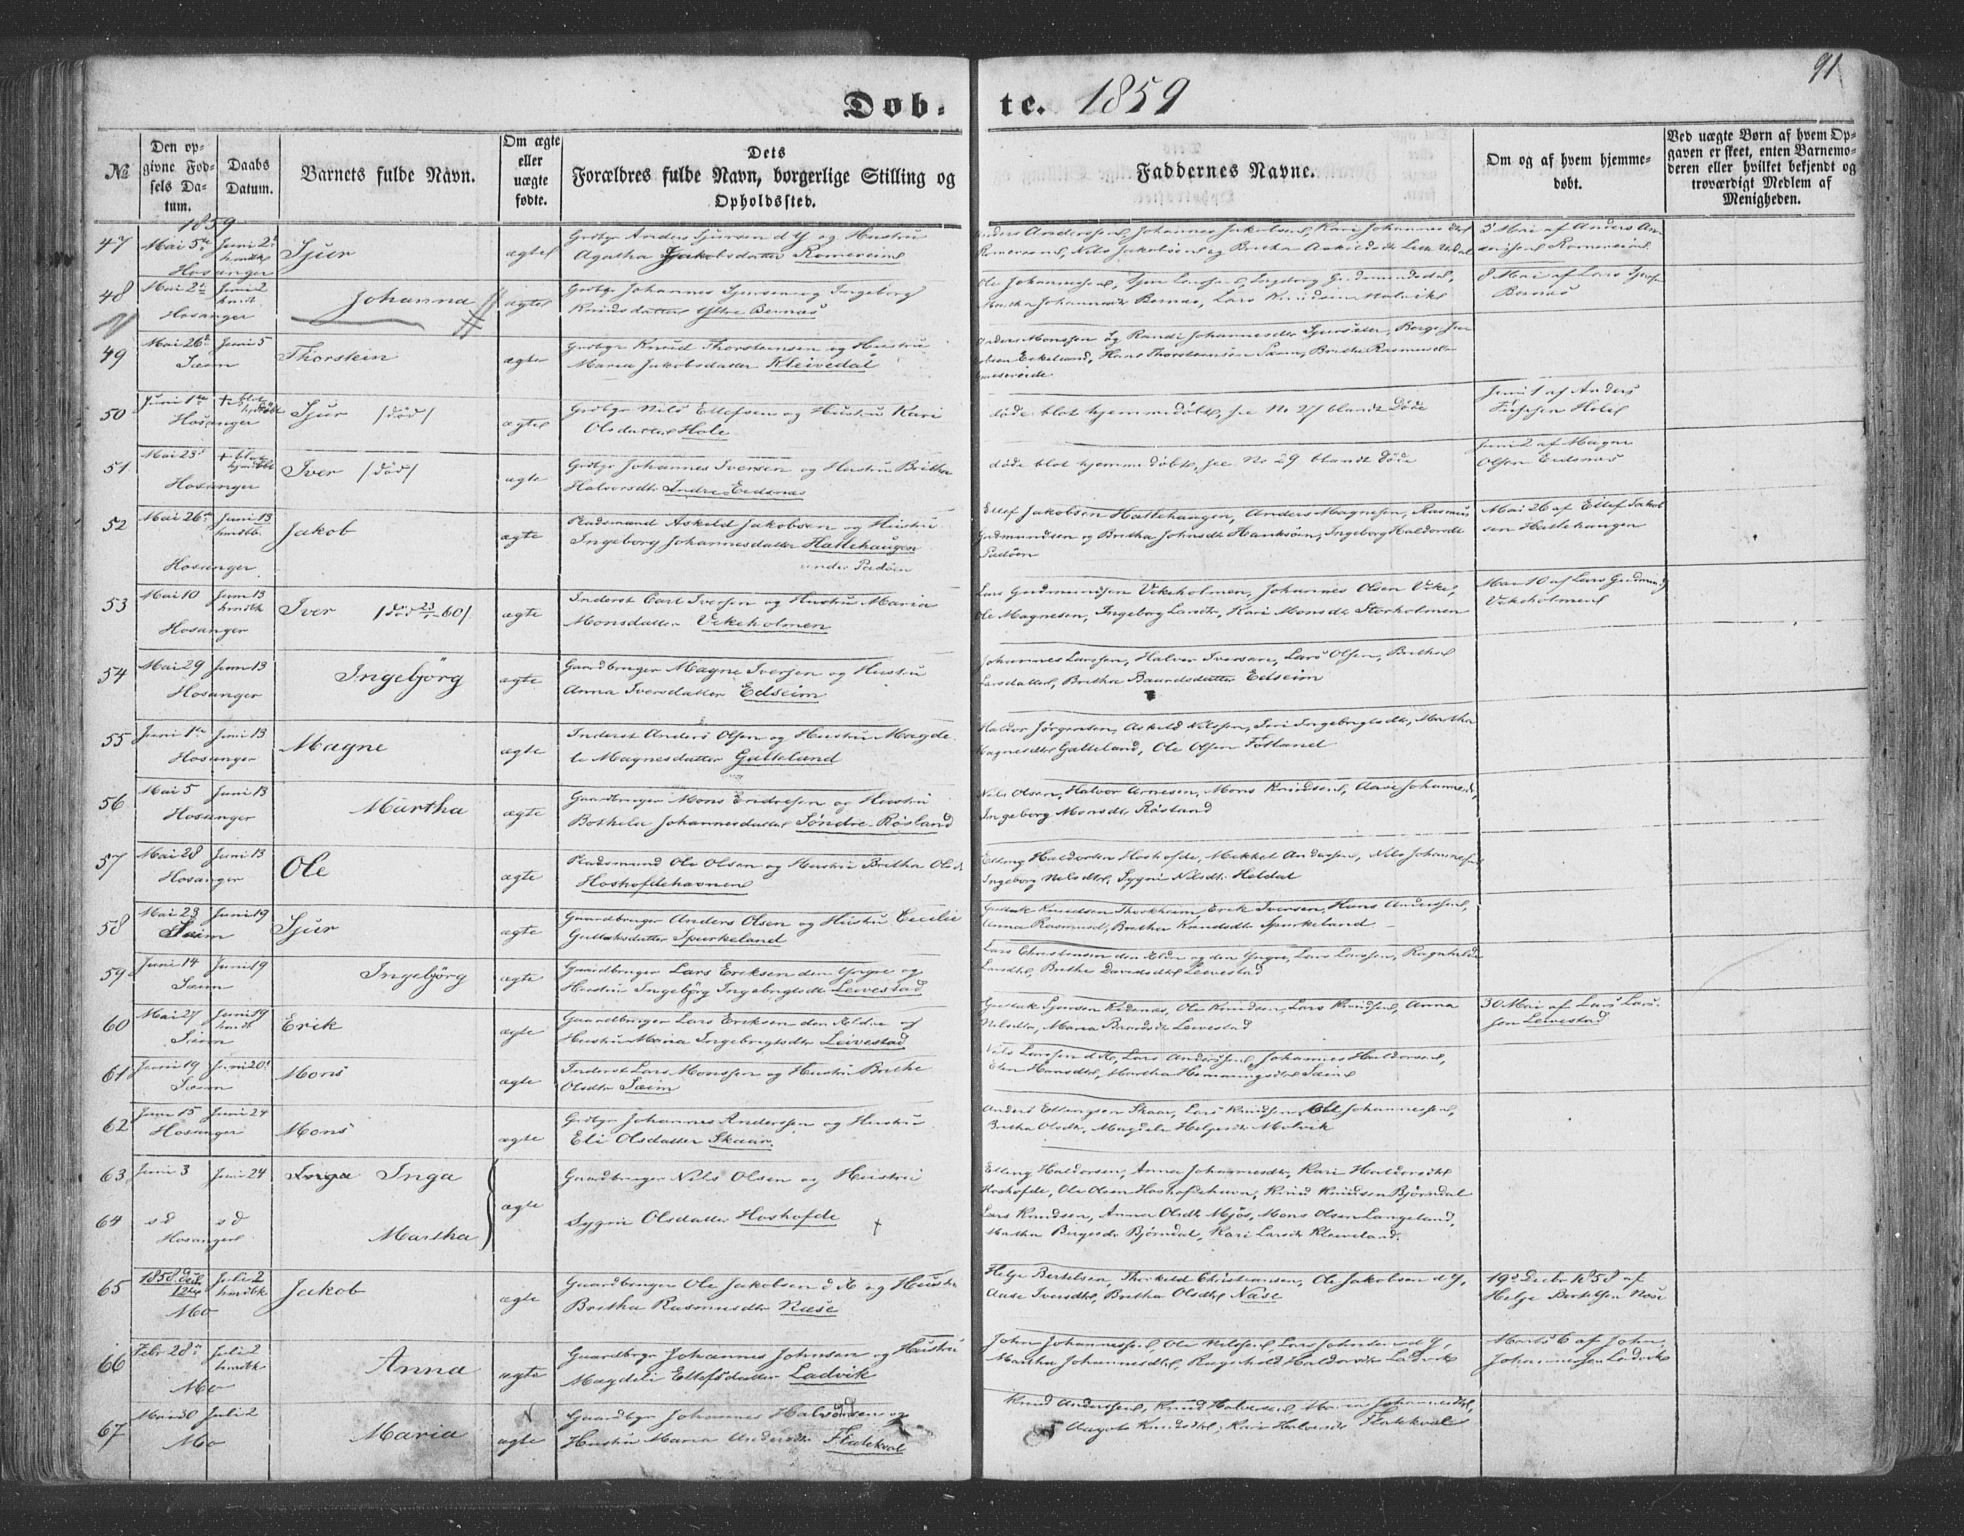 Døb-
te. 1859
91
№
Den op-
givne Fød-
sels Da-
tum.
Daabs
Datum.
Barnets fulde Navn.
Om ægte
eller
uægte
fødte.
Dets
Forældres fulde Navn, borgerlige Stilling og
Opholdssted.
Faddernes Navne.
Om og af hvem hjemme-
døbt.
Ved uægte Børn af hvem Op-
gaven er skeet, enten Barnemo-
deren eller hvilket bekjendt og
troværdigt Medlem af
Menigheden.
1859
47 Mai 5te Juni 2 hmdbt Hosanger
Sjur
ægte
Grdbgr Anders Sjursen d Y og Hustru
Agatha Jakobsdatter Romereim
Anders Andersen, Johannes Jakobsen, Kari Johannesdtr
5 Mai af Anders An-
dersen Romereim
48 Mai 2 Juni 2 hmdt Hosanger
Johanna
ægte
Grdbgr Johannes Sjursen og Ingeborg
Knudsdatter Yttre Bernæs
Ole Johannesen, Sjur Larsen, Ingeborg Gudmundsdtr,
Martha Johannesdtr Bernæs, Lars Knudsen Molvik
8 Mai af Lars
Bernæs
49 Mai 26 Juni 5 Sæim
Thorstein
ægte
Grdbgr Knud Thorstensen og Hustru
Maria Jakobsdatter Kleivedal
Anders Monssen og Randi Johannesdtr
Eikeland, Hans Thorstensen Sæim, Brithe Rasmusdtr
50 Juni 1te + blot hjdøbt Hosanger
Sjur /død/
ægte
Grdbgr Nils Ellefsen og Hustru Kari
Olsdatter Hole
døde blot hjemmedøbt, see No 27 blandt Døde
Juni 1 af Anders
Hole
51 Mai 23 + blot hjmdøbt Hosanger
Iver /død/
ægte
Grdbgr Johannes Iversen og Hustru Britha
Halvorsdtr Indre Eidsnæs
døde blot hjemmedøbt, see No 29 blandt Døde
Juni 2 af Magne
Olsen Eidsnæs
52 Mai 26 Juni 13 hmdbt. Hosanger
Jakob
ægte
Pladsmand Askeld Jakobsen og Hustru
Ingeborg Johannesdatter Hattehaugen
under Padøen
Ellef Jakobsen Hattehaugen, Anders Magnesen, Rasmus
Gudmundsen og Britha Johnsdtr Hauksøen, Ingeborg Haldorsdtr
Padøen
Mai 26 af Ellef Jakob
sen Hattehaugen
53 Mai 10 Juni 13 hmdbt Hosanger
Iver /død 23/1 60/
ægte
Inderst Carl Iversen og Hustru Maria
Monsdatter Vikeholmen
Lars Gudmundsen Vikeholmen, Johannes Olsen Vike,
Ole Magnesen, Ingeborg Larsdtr, Kari Monsdtr Storholmen
Mai 10 af Lars Gudmunds
Vikeholmen
54 Mai 29 Juni 13 Hosanger
Ingebjörg
ægte
Gaardbruger Magne Iversen og Hustru
Anna Iversdatter Edseim
Johannes Larssen, Halvor Iversen, Lars Olsen, Britha
Larsdatter, Britha Baardsdatter Edseim
55 Juni 1te Juni 13 Hosanger
Magne
ægte
Inderst Anders Olsen og Hustru Magde
le Magnesdatter Galteland
Haldor Jörgensen, Askeld Nilssen, Siri Ingebrigtsdtr, Martha
Magnesdtr Galteland, Ole Olsen Fosland
56 Mai 5 Juni 13 Hosanger
Martha
ægte
Gaardbruger Mons Endresen og Hustru
Bothele Johannesdatter Søndre Røsland
Nils Olsen, Halvor Arnesen, Mons Knudsen, Aase Johannesdtr,
Ingeborg Monsdtr Røsland
57 Mai 28 Juni 13 Hosanger
Ole
ægte
Pladsmand Ole Olsen og Hustru Britha Olsdtr
Hoshofdehavnen
Elling Haldorsen Hoshofde, Mikkel Anderssen, Nils Johannessen
Ingeborg Nilsdtr, Sygni Nilsdtr Heldal
58 Mai 23 Juni 19 Sæim
Sjur
ægte
Gaardbruger Anders Olsen og Hustru Cecilie
Gullaksdatter Spurkeland
Gullak Knudsen Thorkheim, Erik Iversen, Hans Anderssen,
Anna Rasmusd, Britha Knudsdtr Spurkeland
59 Juni 14 Juni 19 Sæim
Ingebjörg
ægte
Gaardbruger Lars Eriksen den Yngre og
Hustru Ingebjörg Ingebrigtsdtr Leivestad
Lars Christensen den Ældre og den Yngre, Lars Larssen, Ragnhilde
Larsdtr, Brithe Davidsdtr Leivestad
60 Mai 27 Juni 19 hmdt Sæim
Erik
ægte
Gaardbruger Lars Eriksen den Ældre og
Hustru Maria Ingebrigtsdtr Leivestad
Gullak Sjursen Kidenæs, Ole Knudsen, Lars Knudsen, Anna
Nilsdtr, Maria Baardsdtr Leivestad
30 Mai af Lars Lars-
sen Leivestad
61 Juni 19 Juni 20 Sæim
Mons
ægte
Inderst Lars Monssen og Hustru Brithe
Olsdtr Sæim
Nils Larssen d Æ, Lars Anderssen, Johannes Haldorsen,
Elen Hansdtr, Martha Hemmingsdtr Sæim
62 Juni 15 Juni 24 Hosanger
Mons
ægte
Grdbgr Johannes Anderssen og Hustru
Eli Olsdatter Skaar
Anders Ellingsen Skaar, Lars Knudsen, Ole Johannessen,
Britha Olsdtr, Magdele Helgesdtr Molvik
63 Juni 3 Juni 24
Inga Inga
ægte
Gaardbruger Nils Olsen og Hustru
Sygni Olsdatter Hoshofde
Elling Haldorsen, Anna Johannesdtr, Kari Haldorsdtr
Hoshofde, Ole Olsen Hoshofdehavn, Knud Knudsen Björndal
64 s d s d Hosanger
Martha
Lars Knudsen, Anna Olsdtr Mjøs, Mons Olsen Langeland,
Martha Birgesdtr Björndal, Kari Larsdtr Kleiveland.
65 1858 Juli 2 hmdbt Mo
Jakob
ægte
Gaardbruger Ole Jakobsen d Æ og Hustru
Britha Rasmusdtr Nase
Helge Bertelsen, Thorkeld Christiansen, Ole Jakobsen d Y,
Aase Iversdtr, Britha Olsdtr Nase
19 Decbr 1858 af
Helge Bertelsen Nase
66 Febr 28 Juli 2 hmdbt Mo
Anna
ægte
Gaardbgr Johannes Johnsen og Hustru
Magdeli Ellefsdatter Ladvik
John Johannessen, Ole Nilssen, Lars Johnsen d Y,
Martha Johannesdtr, Ragnhild Haldorsdtr Ladvik
Marts 6 af John
Johannessen Ladvik
67 Mai 30 Juli 2 Mo
Maria
ægte
Gaardbgr Johannes Halvorsen og
Hustru Maria Andersdtr Flatekval
Knud Anderssen, Knud Halvorsen, Maria Johannesdtr,
Aagot Knudsdtr, Kari Halvorsdtr Flatekval